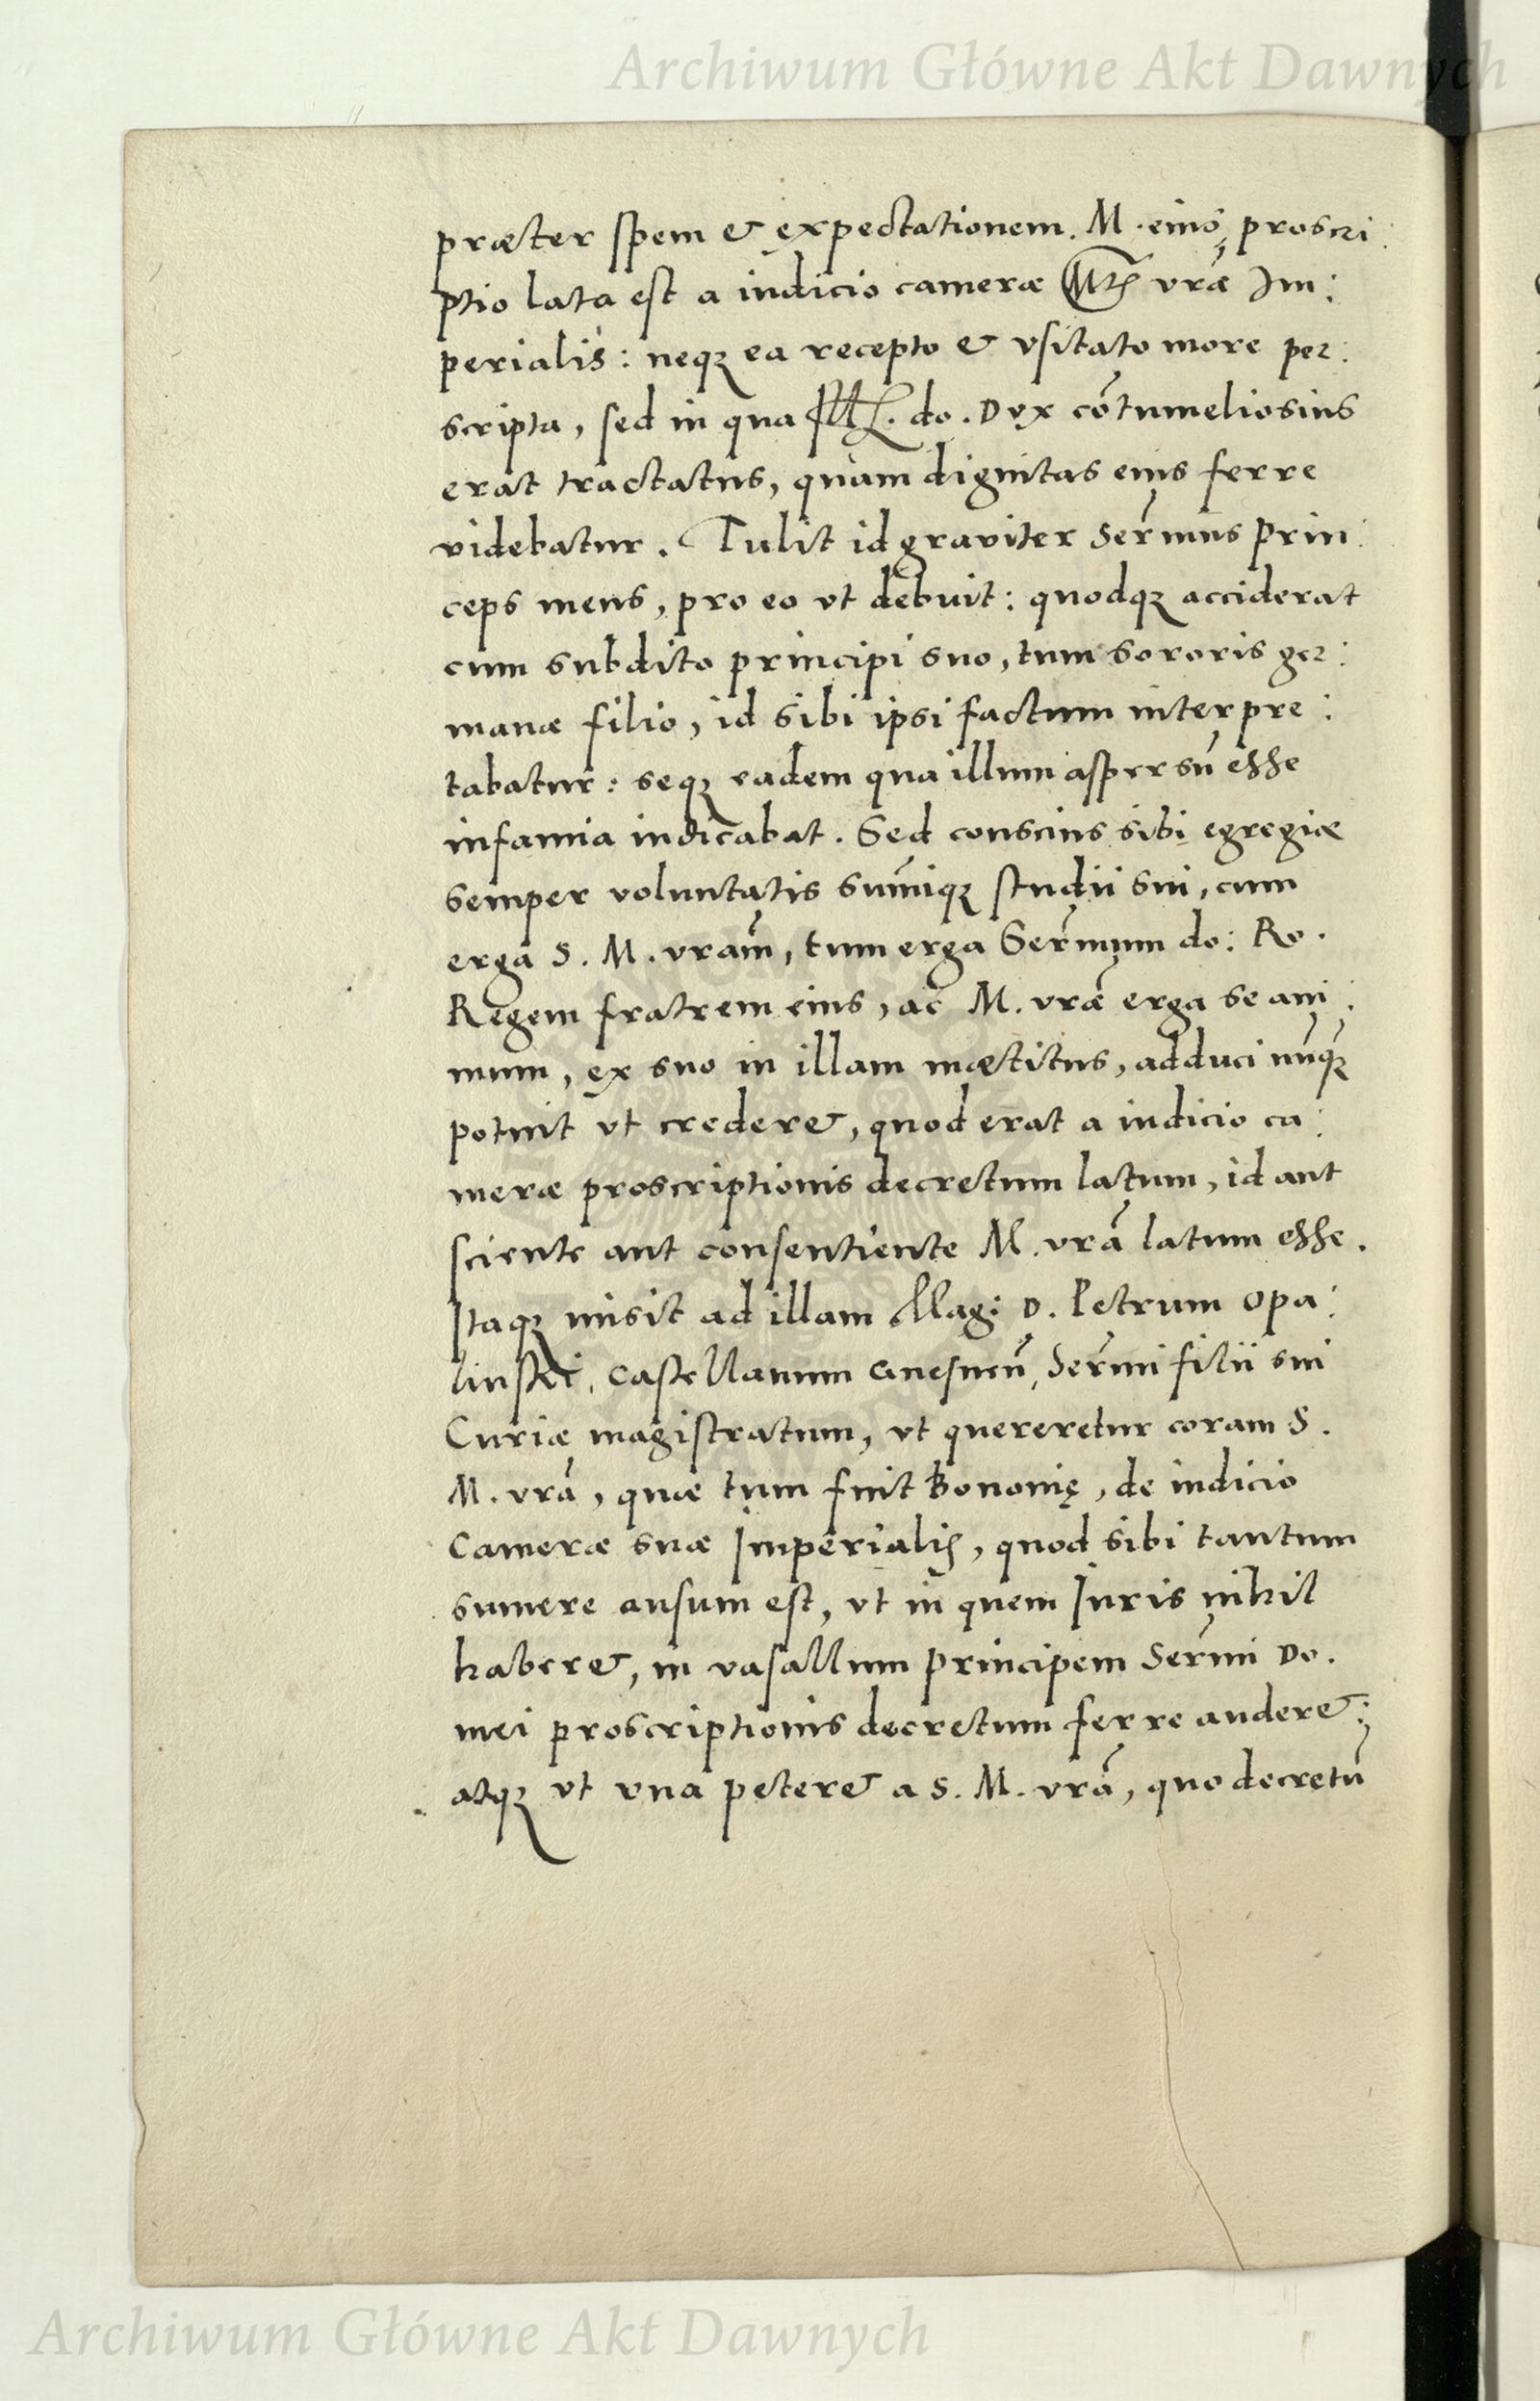 Archiwum Główne Akt Dawnych
præter spem & expectationem. M. eius, proscri:
ptio lata est a iudicio cameræ Mtis vræ Im:
perialis: neqz ea recepto & vsitato more per:
scripta, sed in qua Ill. do. Dux cōtumeliosius
erat tractatus, quam dignitas eius ferre
videbatur. Tulit id graviter Sermus Prin:
ceps meus, pro eo vt debuit: quodqz acciderat
cum subdito principi suo, tum sororis ger:
manæ filio, id sibi ipsi factum interpre:
tabatur: seqz eadem qua illum aspersū esse
infamia iudicabat. Sed conscius sibi egregiæ
semper voluntatis sum̄iqz studii sui, cum
erga S. M. vram, tum erga Sermum do: Ro.
Regem fratrem eius, ac M. vræ erga se ani:
mum, ex suo in illam mætitus, adduci nūqz
potuit vt credere&, quod erat a iudicio ca:
meræ proscriptionis decretum latum, id aut
sciente aut consentiente M. vrā latum esse.
Itaqz misit ad illam Mag: D. Petrum Opa:
linski, Castellanum Gnesneñ, Sermi filii sui
Curiæ magistratum, vt quereretur coram S.
M. vrā, quæ tum fuit Bononię, de iudicio
Cameræ suæ Imperialis, quod sibi tantum
sumere ausum est, vt in quem Iuris nihil
habere&, in vasallum principem Sermi Do.
mei proscriptionis decretum ferre audere&:
atqz vt una petere& a S. M. vrā, quo decretū
Archiwum Główne Akt Dawnych